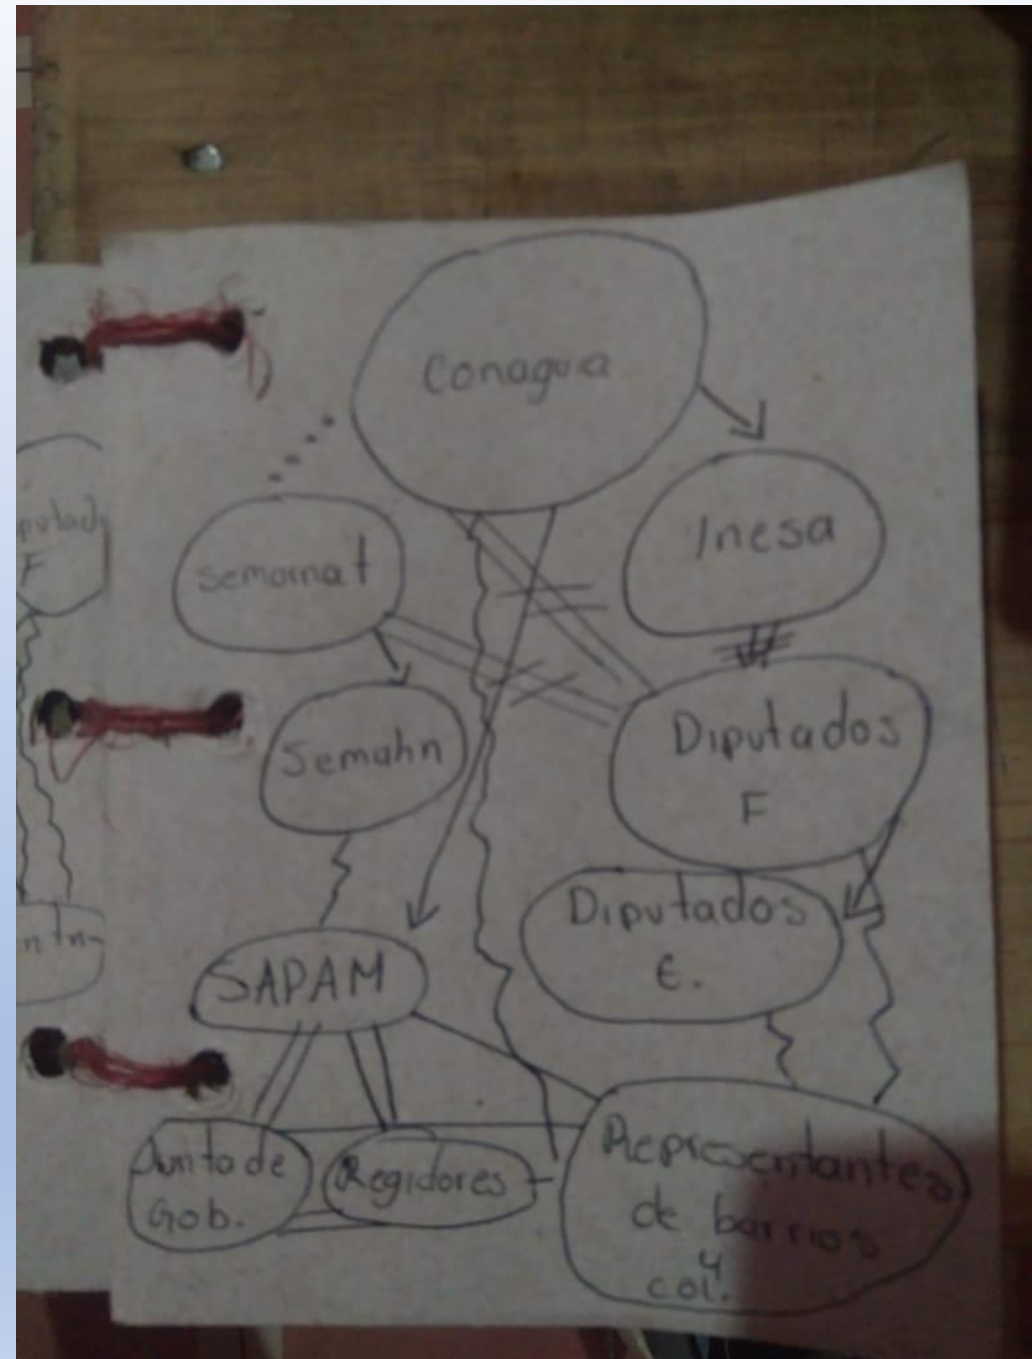 Conagua
Inesa
semarnat
Semahn
Diputados
F
Diputados
E.
SAPAM
Junta de
Gob.
Regidores
Representantes
de barrios
y
col.
F